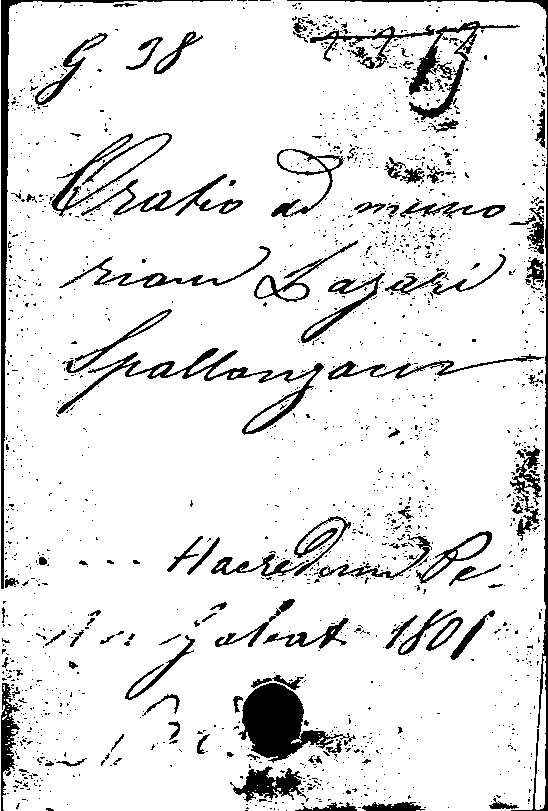 G. 38
Oratio ad memo-
riam Lazari
Spallanzani
.... Haeredum Pe-
Galeat 1801